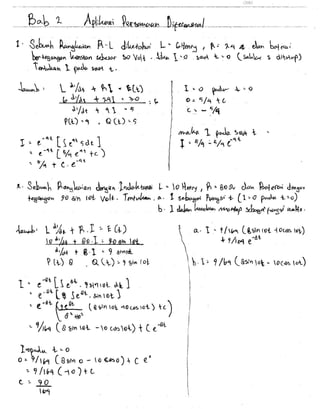 Bab 2 Aplikasi Persamaan Diferensial
1. Sebuah Rangkaian R-L diketahui L = 6 Henry, R = 24 Ω dan baterai
bertegangan konstan sebesar 30 Volt. Jika I = 0 saat t = 0 (saklar s ditutup)
Tentukan I pada saat t.
Jawab: L dI/dt + RI = E(t)
6 dI/dt + 24I = 30 : 6
dI/dt + 4I = 5
P(t) = 4, Q(t) = 5
I = e^-4t [∫ e^4t 5 dt]
= e^-4t [5/4 e^4t + c]
= 5/4 + C.e^-4t
I = 0 pada t = 0
0 = 5/4 + c
c = -5/4
maka I pada saat t
I = 5/4 - 5/4 e^-4t
2. Sebuah Rangkaian dengan Induktansi L = 10 Henry, R = 80 Ω dan Baterai dengan
tegangan 90 sin 10t Volt. Tentukan. a. I sebagai Fungsi t (I = 0 pada t = 0)
b. I dalam sebagai fungsi waktu.
Jawab: L dI/dt + R.I = E(t)
10 dI/dt + 80.I = 90 sin 10t
dI/dt + 8.I = 9 sin 10t
P(t) 8, Q(t) = 9 sin 10t
I = e^-8t [∫ e^8t. 9 sin 10t dt]
= e^-8t [9 ∫ e^8t. sin 10t]
= e^-8t [9e^8t / 8²+10² (8 sin 10t - 10 cos 10t) + c]
= 9/164 (8 sin 10t - 10 cos 10t) + C e^-8t
I = 0 pada t = 0
0 = 9/164 (8 sin 0 - 10 cos 0) + C e°
= 9/164 (-10) + c
c = 90/164
a. I = 9/164 (8 sin 10t - 10 cos 10t)
+ 90/164 e^-8t
b. I = 9/164 (8 sin 10t - 10 cos 10t)